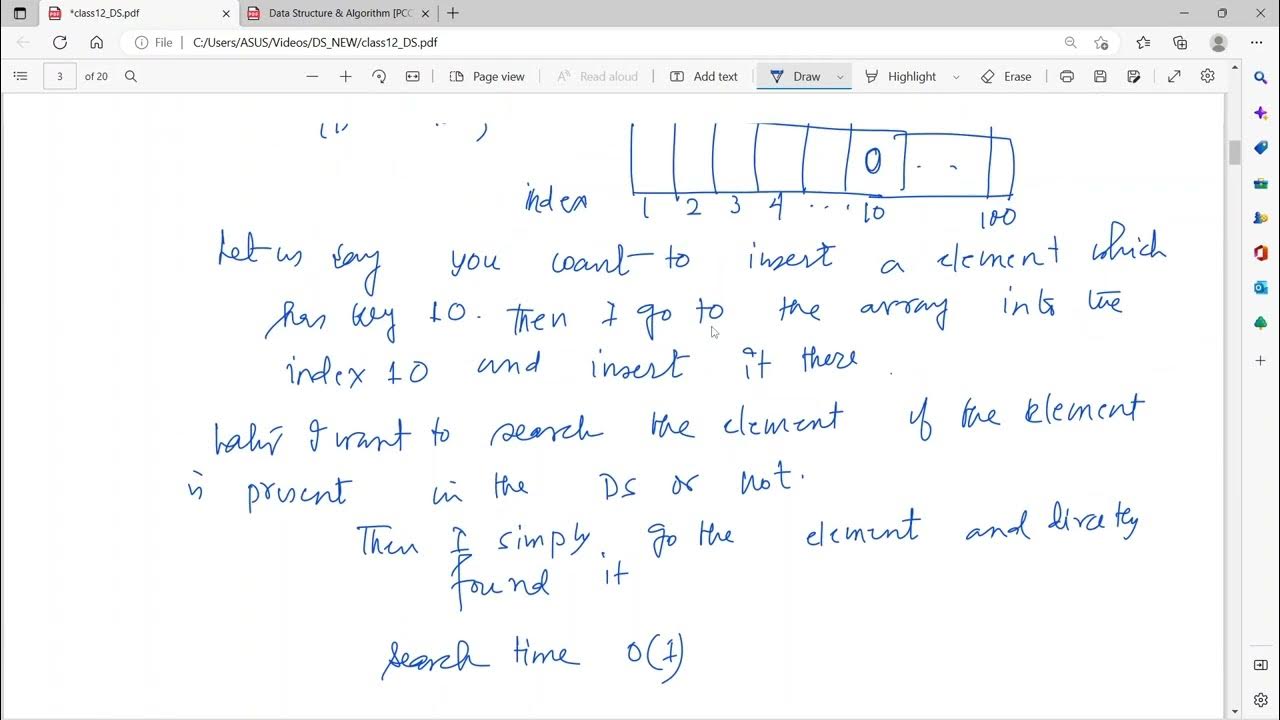 *class12_DS.pdf
Data Structure & Algorithm [PCC
File
C:/Users/ASUS/Videos/DS_NEW/class12_DS.pdf
3 of 20
Page view
Read aloud
Add text
Draw
Highlight
Erase
0 . .
index 1 2 3 4 ... 10 100
Let us say you want to insert a element which
has key 10. Then I go to the array into the
index 10 and insert it there.
I want to search the element if the element
is present in the DS or not.
Then I simply go the element and directly
found it
search time O(1)